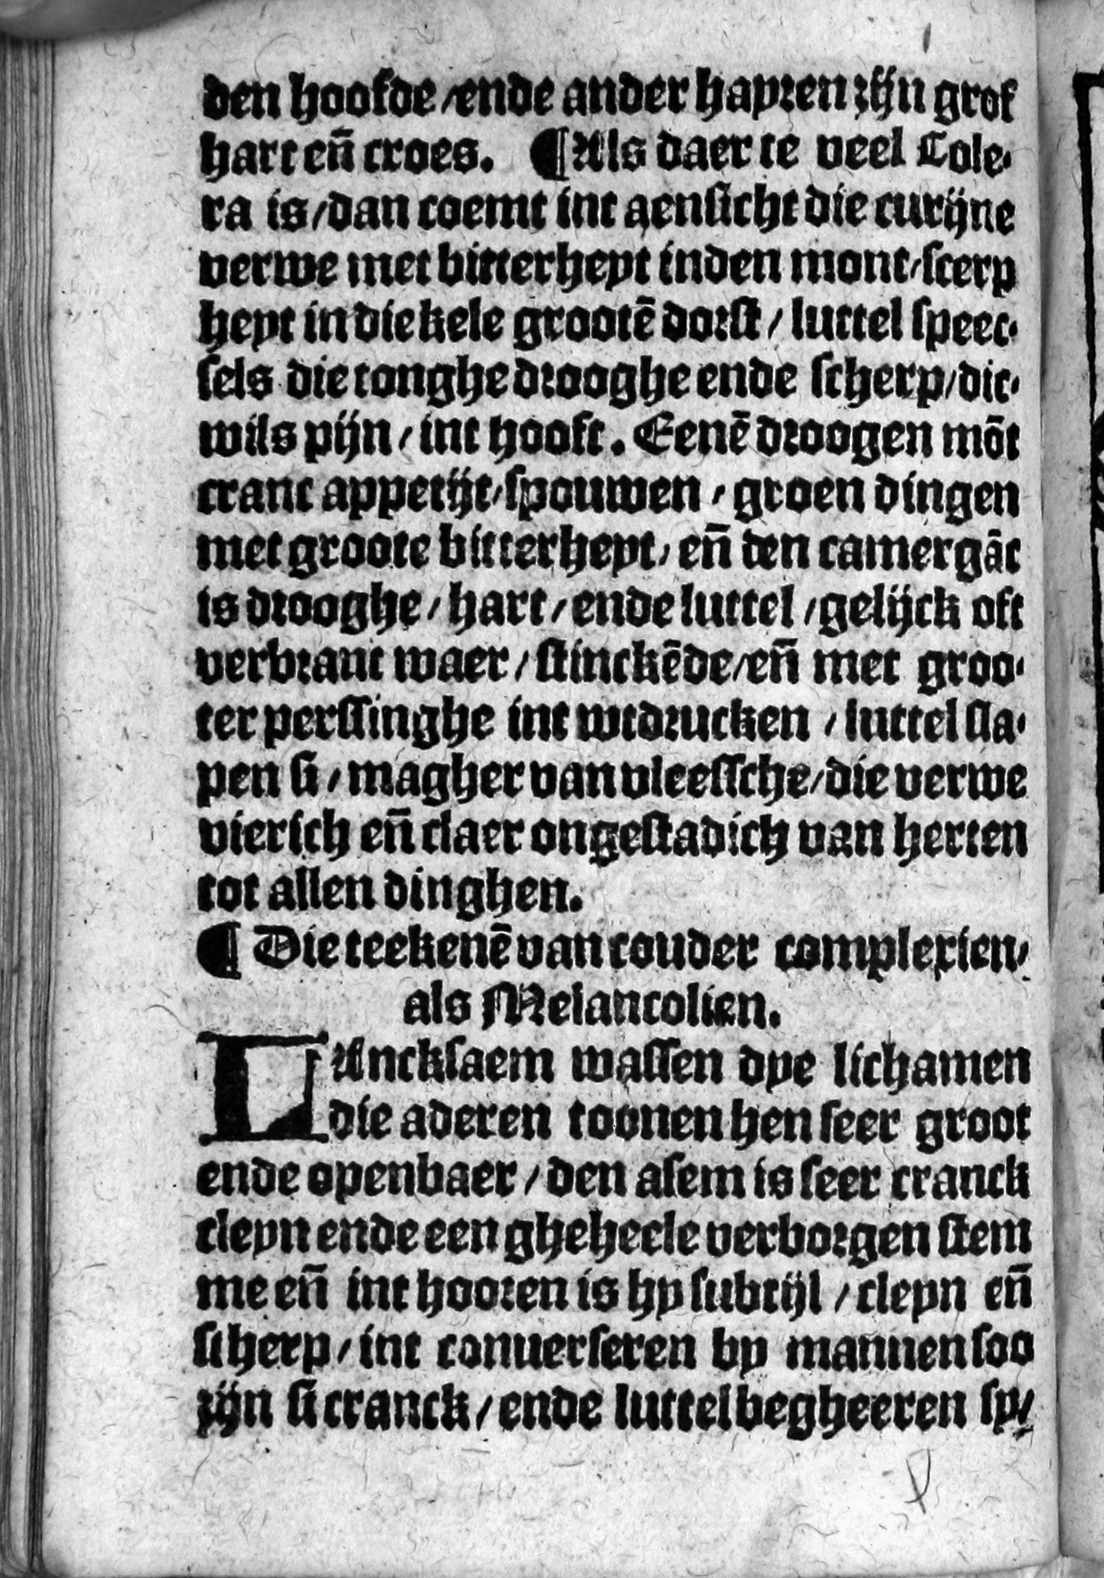 den hoofde/ende ander hayren zijn grof
hart eñ croes. ¶Als daer te veel Cole-
ra is/dan coemt int aensicht die cutijne
verwe met bitterheyt inden mont/scerp
heyt in die kele grootē dorst/ luttel speec-
sels die tonghe drooghe ende scherp/dic-
wils pijn/ int hooft. Eenē droogen mōt
cranc appetijt/spouwen/ groen dingen
met groote bitterheyt/ eñ den camergāc
is drooghe/ hart/ ende luttel/gelijck oft
verbrant waer/ stinckēde/eñ met groo-
ter perssinghe int wtdrucken / luttel sla-
pen si/ magher van vleessche/die verwe
vierich eñ claer ongestadich van herten
tot allen dinghen.
¶ Die teekenē van couder complexien/
als Melancolien.
LAncksaem wassen dye lichamen
die aderen toonen hen seer groot
ende openbaer/ den asem is seer cranck
cleyn ende een gheheele verborgen stem
me eñ int hooren is hy subtijl / cleyn eñ
scherp/ int conuerseren by mannen soo
zijn si cranck/ ende luttel begheeren sy/